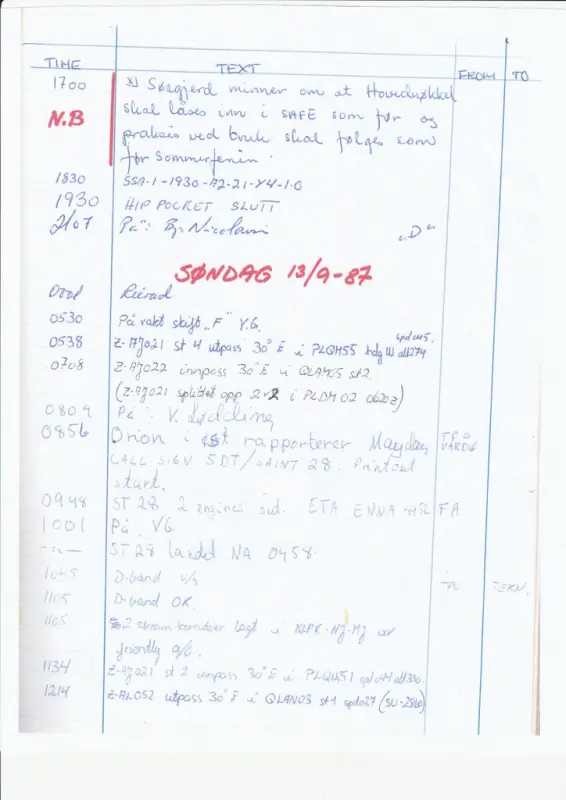 TIME TEXT FROM TO
1700 x) Søegjerd minner om at Hovednøkkel
N.B skal låses inn i SAFE som før og
praksis ved bruk skal følges som
før sommerferien.
1830 SSA-1-1930-A2-21-Y4-1-0
1930 HIP POCKET SLUTT
2107 På: By: Nicolaisen "D"
SØNDAG 13/9-87
0530 På vakt skift "F" V.G.
0538 Z-AJ021 st 4 utpass 30°E i PLQM55 hdg W alt274
0708 Z-AJ022 innpass 30°E i QLAM05 st2.
(Z-AJ021 splittet opp 2v2 i PLDM02 0620z)
0809 På: V. Rødding
0856 Orion i 1st rapporterer Mayday
VARDØ
CALL SIGN SDT/SAINT 28. Printout
start.
0948 ST 28 2 engines out. ETA ENNA FA
1001 På VG.
-"- ST 28 landet NA 0958.
1045 D-band u/s TERN.
1105 D-band OK.
1105 2 stream korridorer lagt i NLPK-NJ-MJ av
friendly a/c.
1134 Z-AJ021 st 2 innpass 30°E i PLQM51
1214 Z-AL052 utpass 30°E i QLAN03 st1 spd027